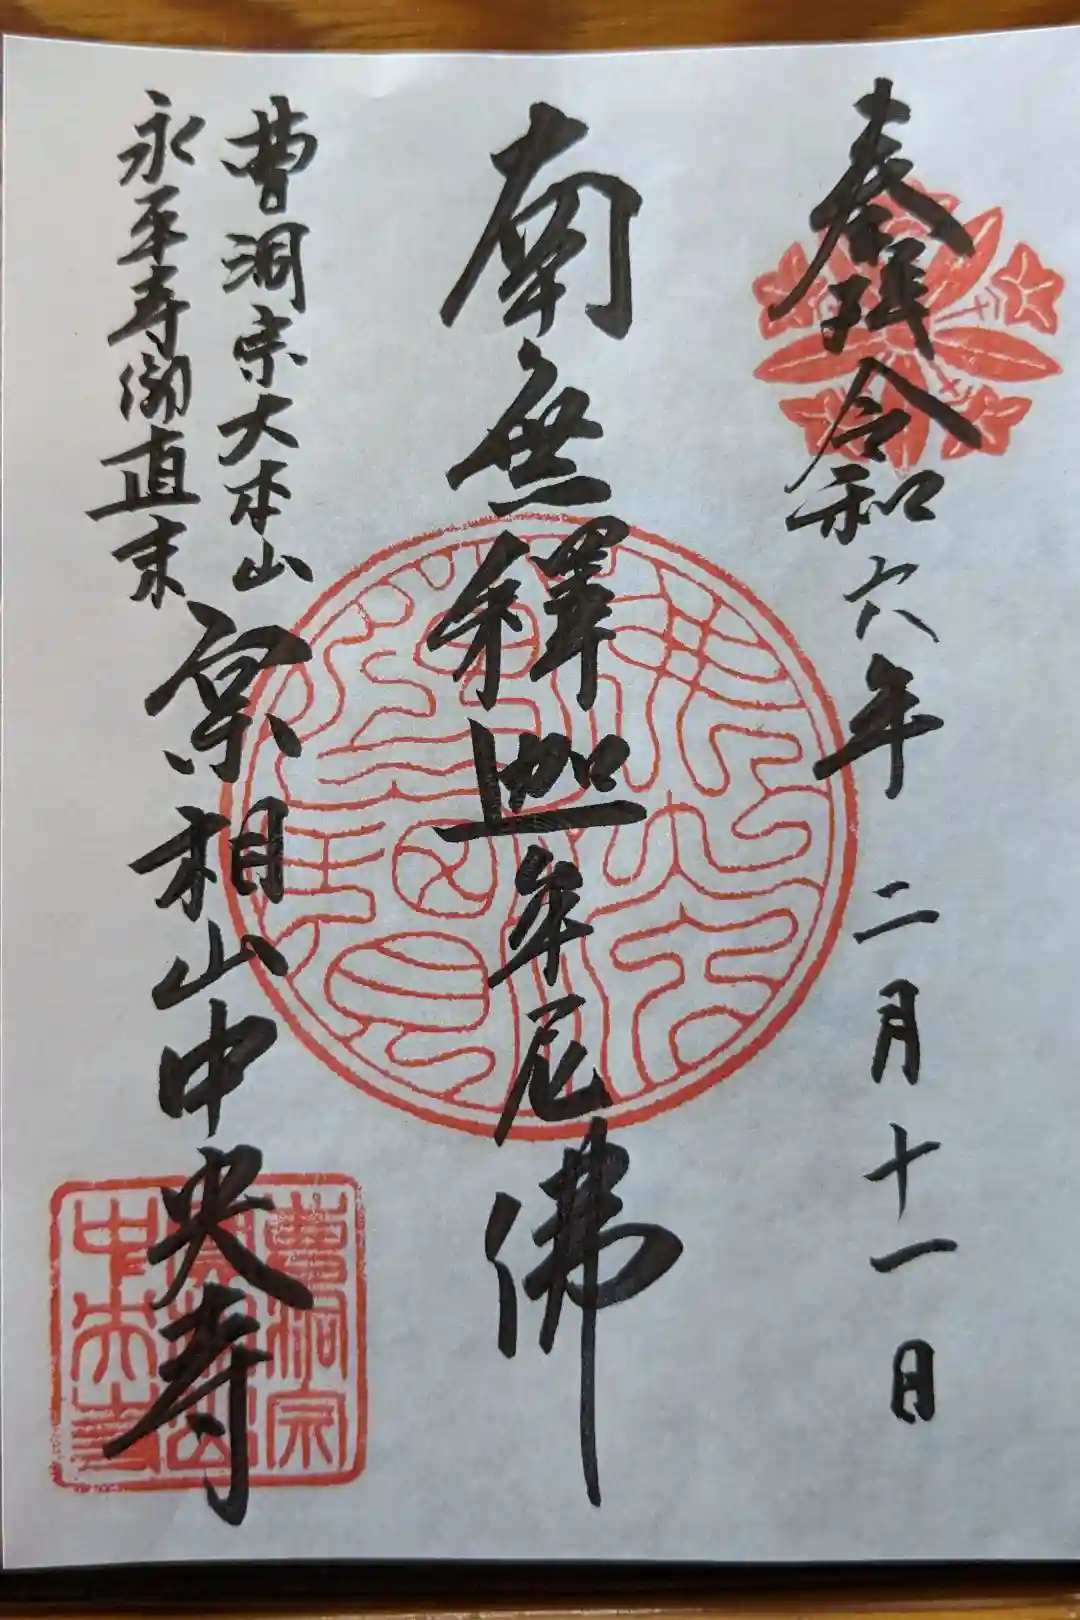 奉拝 令和六年二月十一日
南無釋迦牟尼佛
曹洞宗大本山
永平寺御直末
相山中央寺
曹洞宗
中央寺